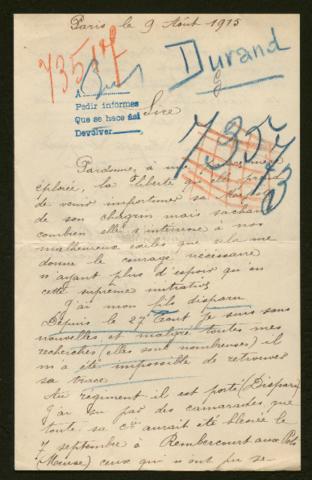 Paris le 9 Août 1915
7351
Durand
A
Pedir informes
Que se hace así
Devolver
Sire
Pardonnez à une mère
éplorée, la liberté qu'elle prend
de venir importuner sa
de son chagrin mais sachant
combien elle s'intéresse à nos
malheureux exilés que cela me
donne le courage nécessaire
n'ayant plus d'espoir qu'en
cette suprême
J'ai mon fils disparu
Depuis le 27 Août je suis sans
nouvelles et malgré toutes mes
recherches (elles sont nombreuses) il
m'a été impossible de retrouver
sa trace
Au régiment il est porté (Disparu)
J'ai su par des camarades que
toute sa Cie aurait été blessée le
7 septembre à Rembercourt aux Pots
(Meuse) ceux qui n'ont pu se